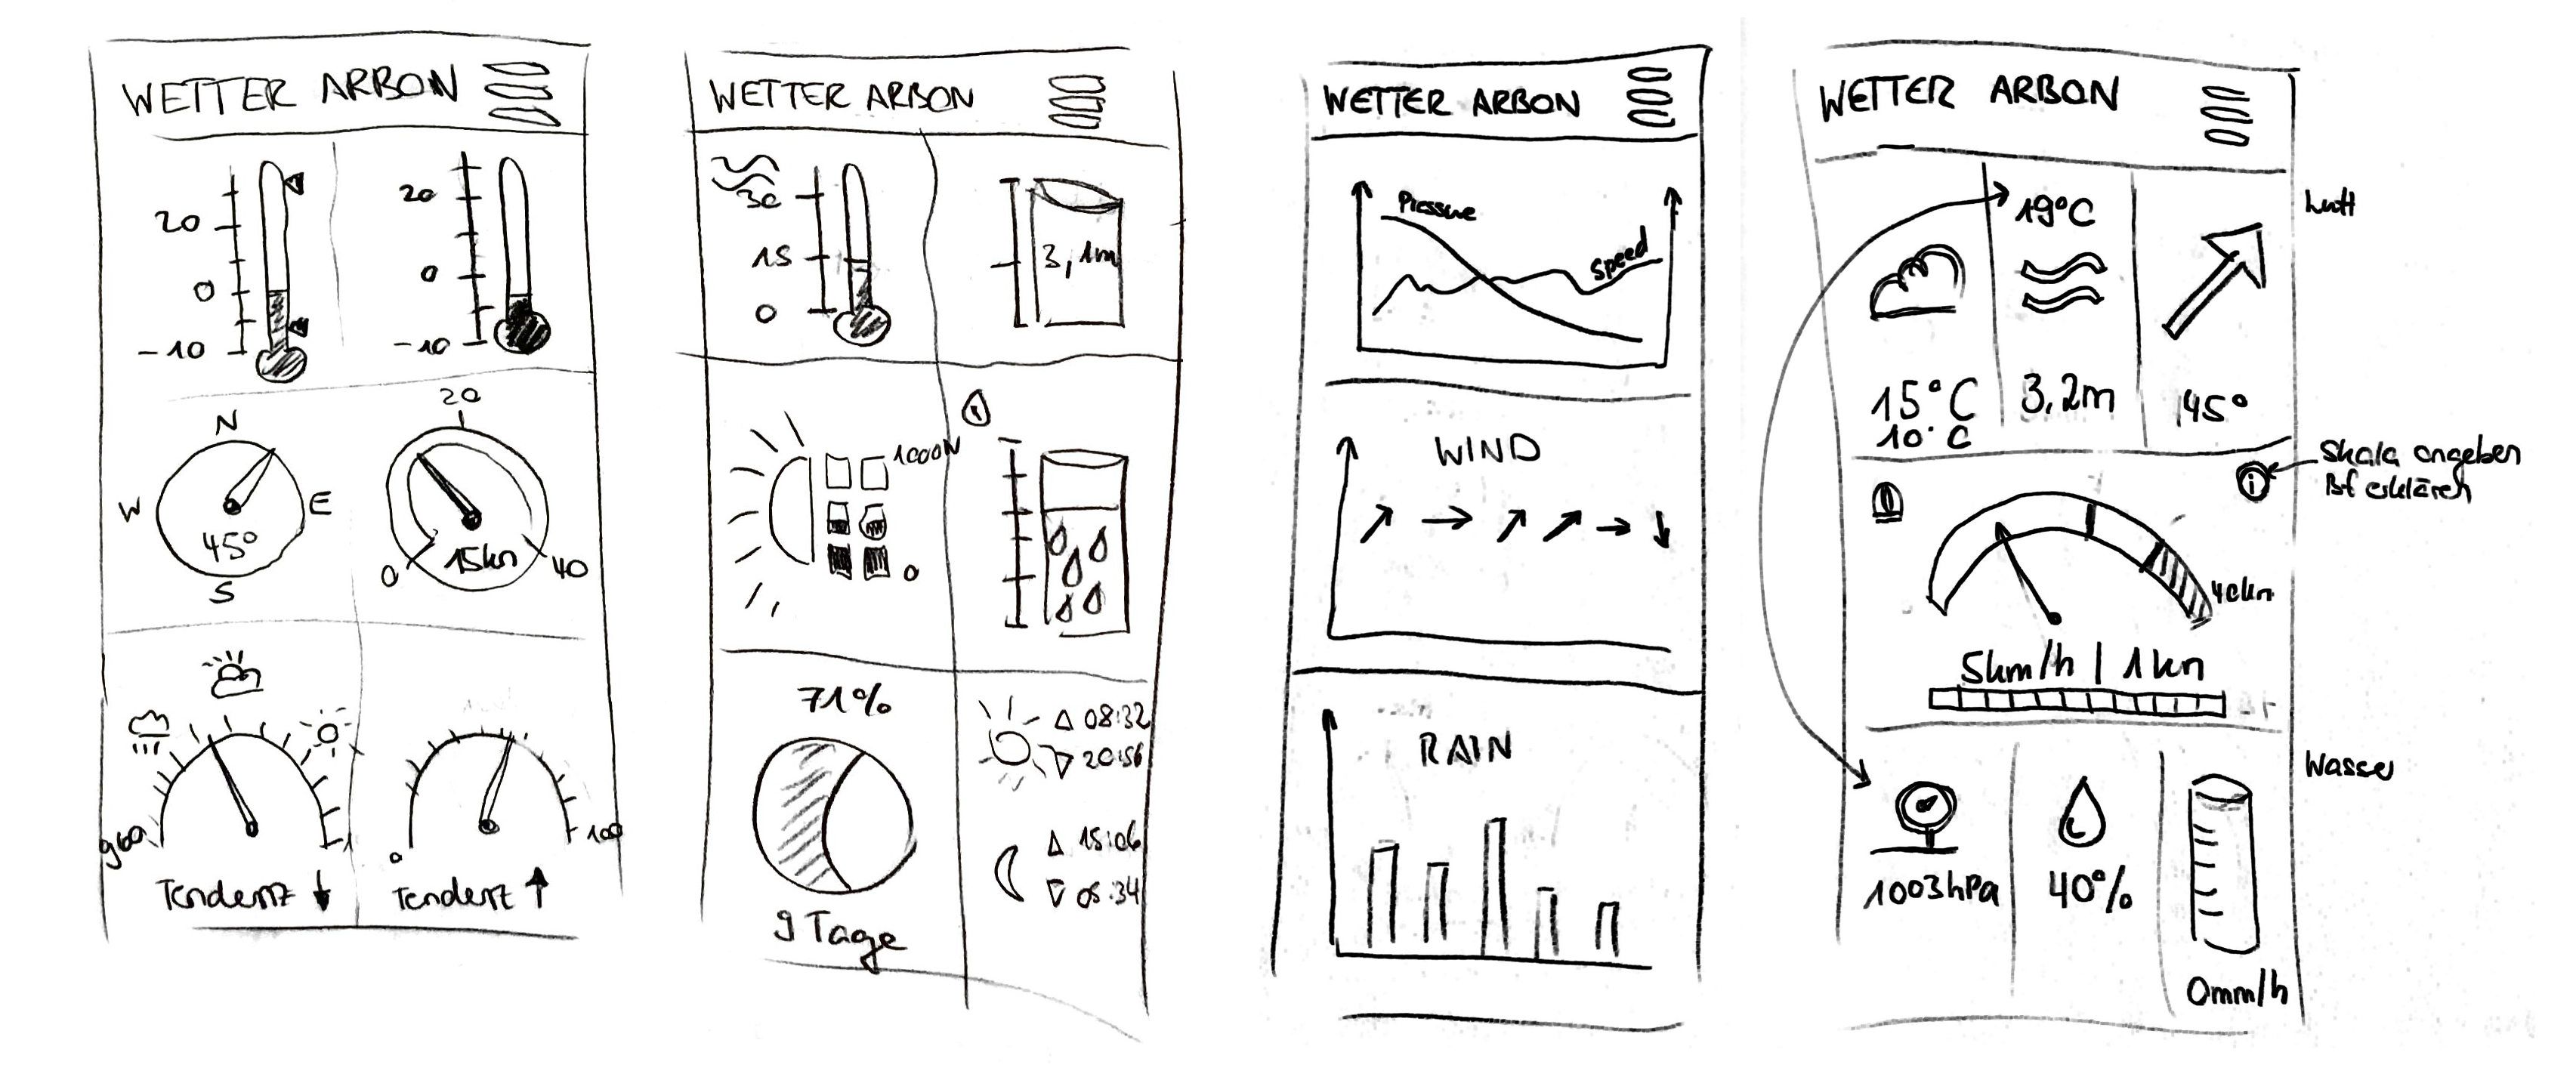 WETTER ARBON
20
0
-10
20
0
-10
N
W
E
S
45°
20
0
40
15kn
960
Tendenz
0
100
Tendenz
WETTER ARBON
30
15
0
3,1m
1000W
0
71%
9 Tage
08:32
20:56
15:06
05:34
WETTER ARBON
Pressure
Speed
WIND
RAIN
WETTER ARBON
19°C
Luft
15°C
10°C
3,2m
45°
i
Skala angeben
Bf erklären
40kn
5km/h | 1kn
Wasser
1003hPa
40%
0mm/h